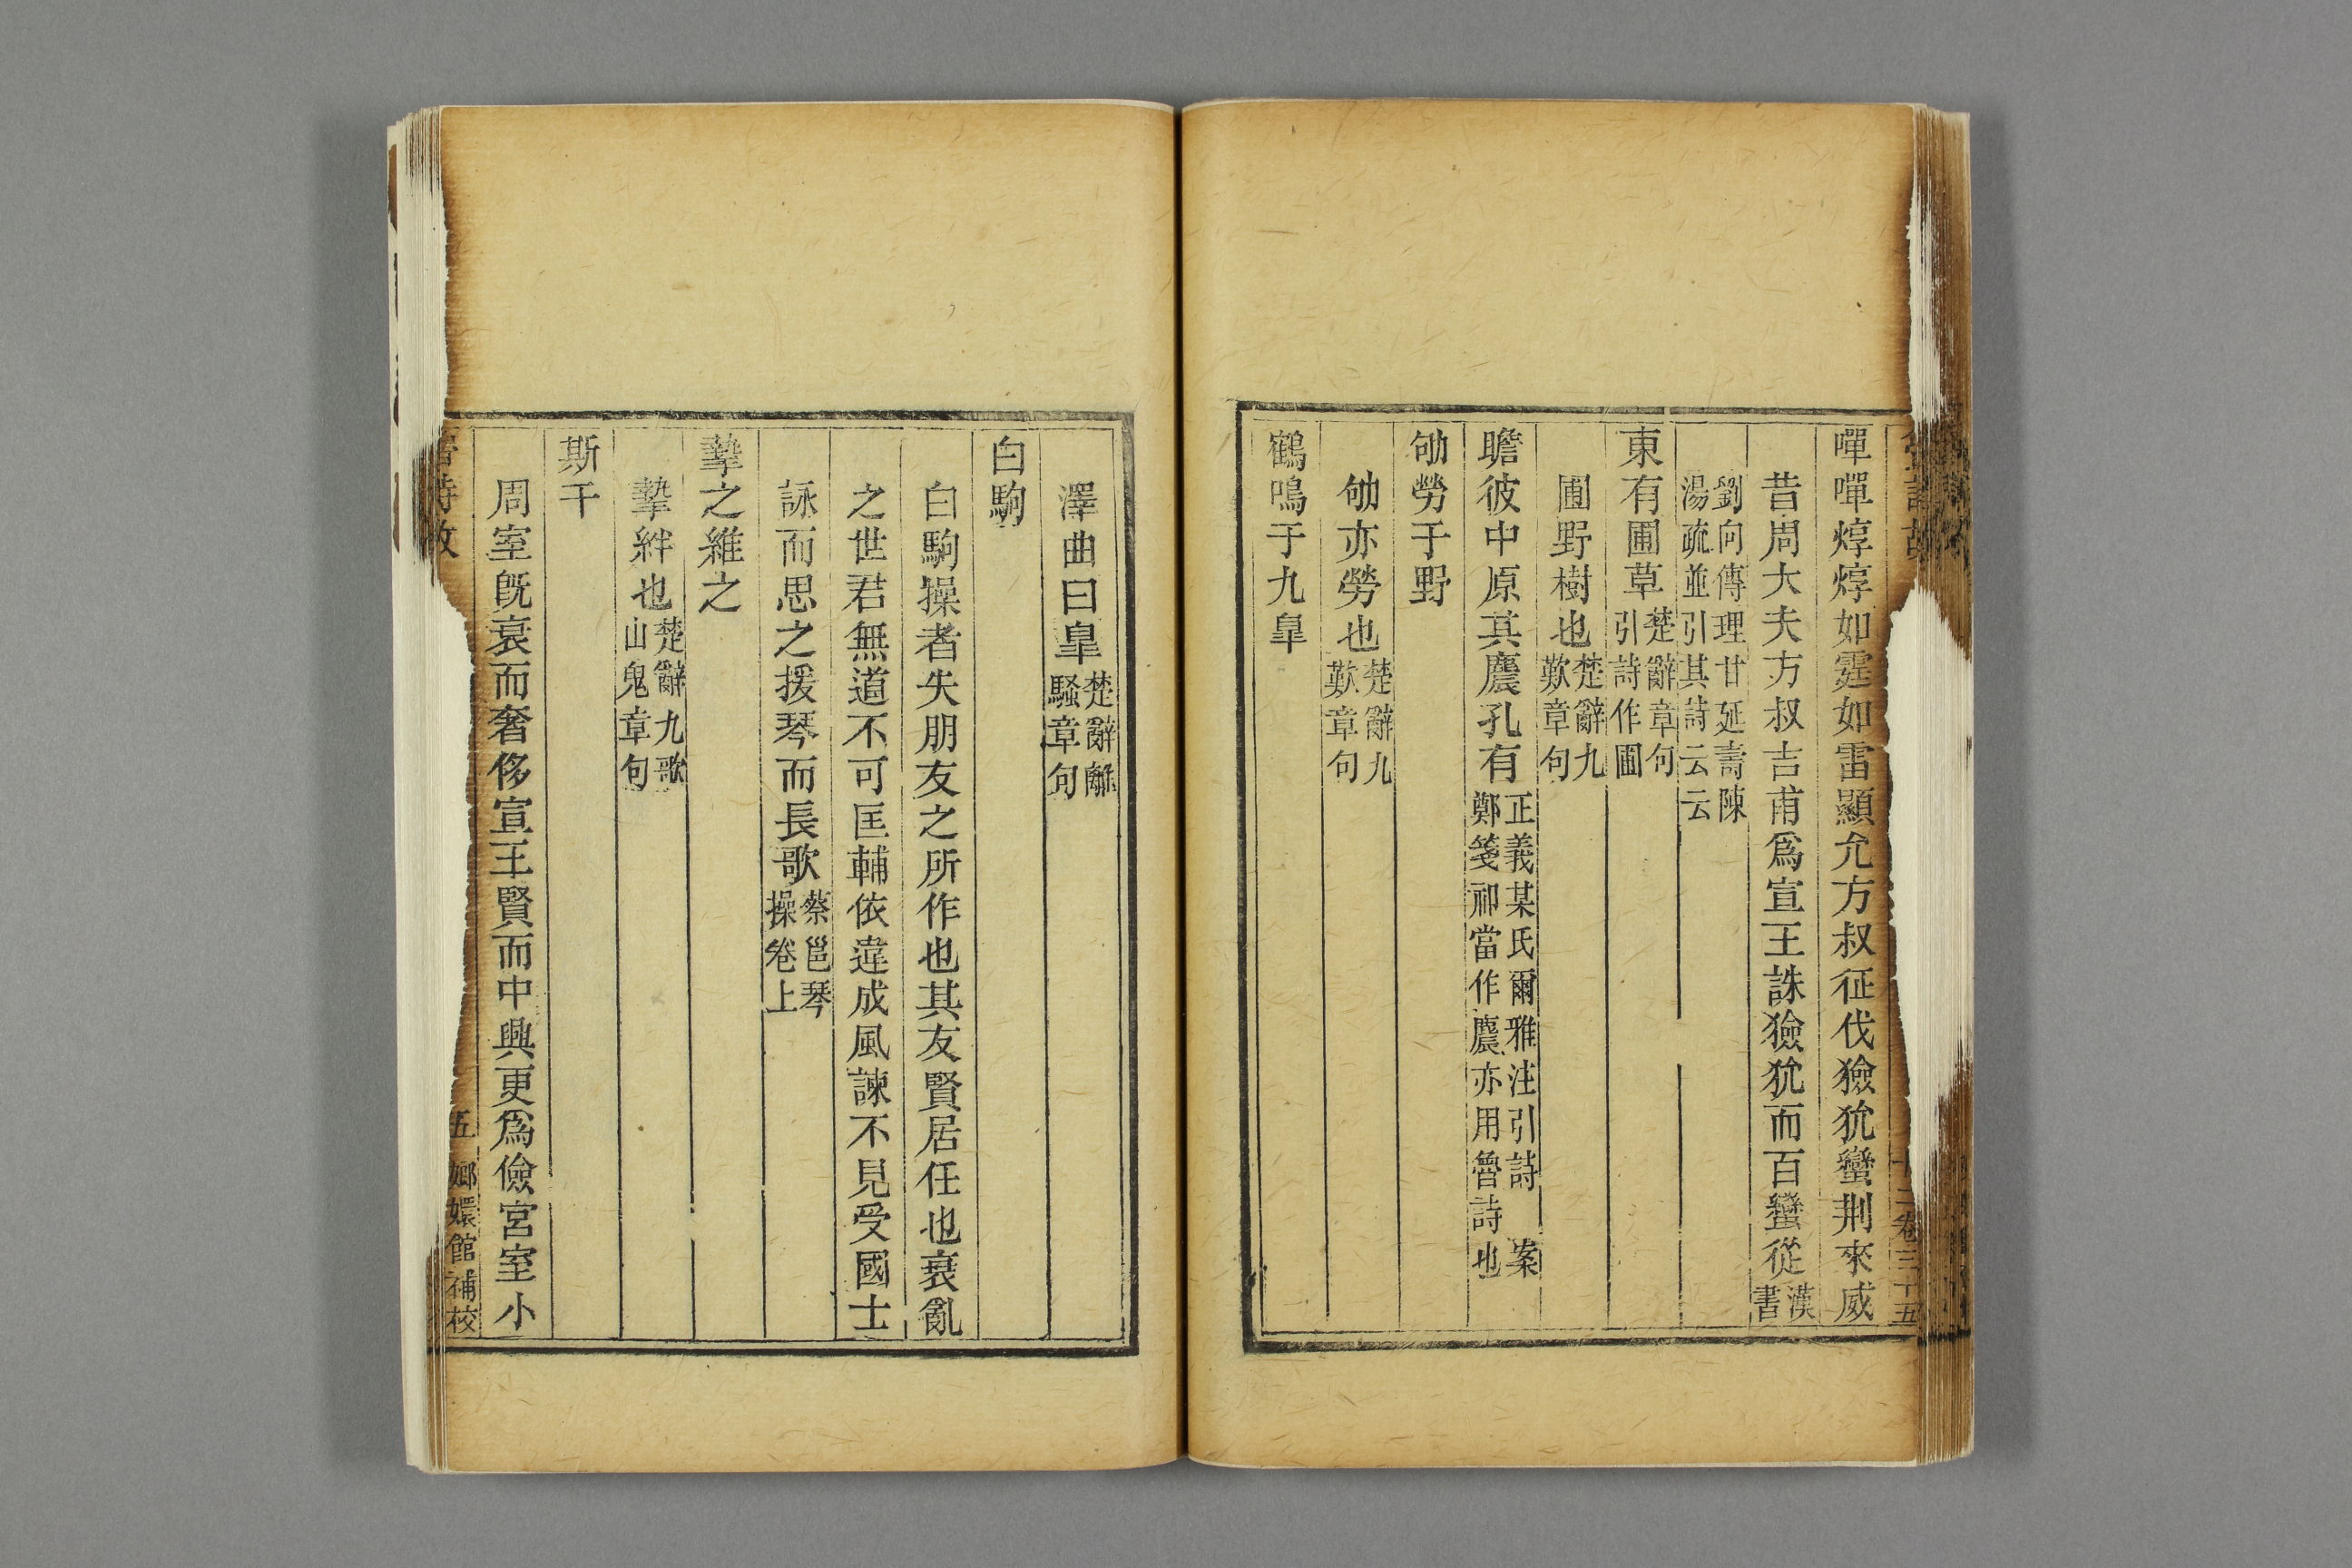 嘽嘽焞焞如霆如雷顯允方叔征伐獫狁蠻荆來威
昔周大夫方叔吉甫爲宣王誅獫狁而百蠻從漢書
劉向傳理甘延壽陳湯疏並引其詩云云
東有圃草楚辭章句引詩作圃
圃野樹也楚辭九歎章句
瞻彼中原其麎孔有正義某氏爾雅注引詩 案鄭箋祁當作麎亦用魯詩也
劬勞于野
劬亦勞也楚辭九歎章句
鶴鳴于九皐
澤曲曰皐楚辭離騷章句
白駒
白駒操者失朋友之所作也其友賢居任也衰亂
之世君無道不可匡輔依違成風諫不見受國士
詠而思之援琴而長歌蔡邕琴操卷上
縶之維之
縶絆也楚辭九歌山鬼章句
斯干
周室旣衰而奢侈宣王賢而中興更爲儉宮室小
五 嫏嬛館補校